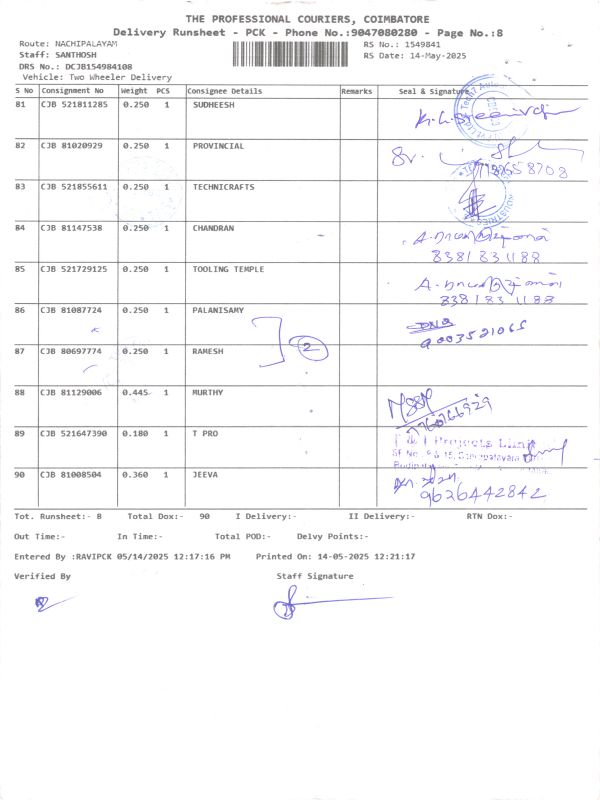 THE PROFESSIONAL COURIERS, COIMBATORE
Delivery Runsheet - PCK - Phone No.:9047080280 - Page No.:8
Route: NACHIPALAYAM RS No.: 1549841
Staff: SANTHOSH RS Date: 14-May-2025
DRS No.: DCJB154984108
Vehicle: Two Wheeler Delivery
S No Consignment No Weight PCS Consignee Details Remarks Seal & Signature
81 CJB 521811285 0.250 1 SUDHEESH
82 CJB 81020929 0.250 1 PROVINCIAL
83 CJB 521855611 0.250 1 TECHNICRAFTS
84 CJB 81147538 0.250 1 CHANDRAN
8381831188
85 CJB 521729125 0.250 1 TOOLING TEMPLE
8381831188
86 CJB 81087724 0.250 1 PALANISAMY
9003521065
2
87 CJB 80697774 0.250 1 RAMESH
88 CJB 81129006 0.445 1 MURTHY
89 CJB 521647390 0.180 1 T PRO
90 CJB 81008504 0.360 1 JEEVA
9626442842
Tot. Runsheet:- 8 Total Dox:- 90 I Delivery:- II Delivery:- RTN Dox:-
Out Time:- In Time:- Total POD:- Delvy Points:-
Entered By :RAVIPCK 05/14/2025 12:17:16 PM Printed On: 14-05-2025 12:21:17
Verified By Staff Signature